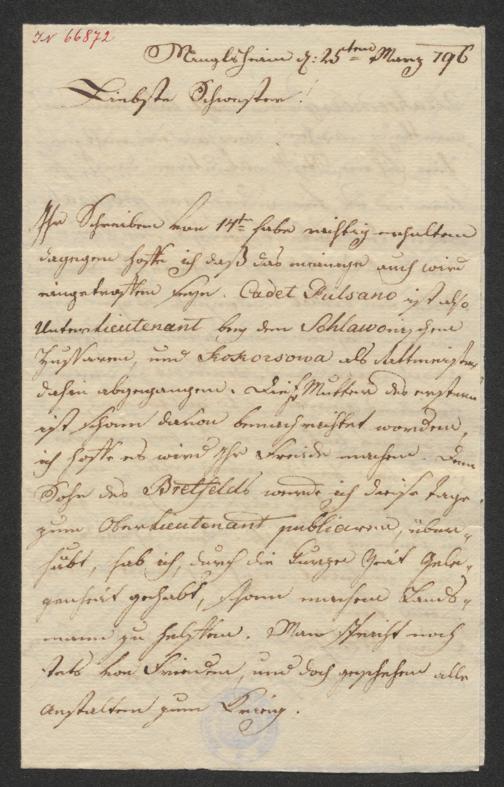 IN 66872
Minglsheim d: 25ten März 796
Liebste Schwester!
Ihr Schreiben von 14t habe richtig erhalten
dagegen hoffe ich daß das meinige auch wird
eingetroffen seyn. Cadet Pulsano ist also
Unterlieutenant bey den Schlawonischen
Hussaren, und Kokorsowa als Rittmeister
dahin abgegangen. Die Mutter des erstern
ist schon davon benachrichtet worden,
ich hoffe es wird Ihr Freude machen. Den
Sohn des Bretfelds werde ich diese Tage
zum Oberlieutenant publiciren, über-
haubt, hab ich, durch die kurze Zeit Gele-
genheit gehabt, schon manchen Lands-
mann zu helffen. Man spricht noch
stets von Frieden, und doch geschehen alle
Anstalten zum Krieg.